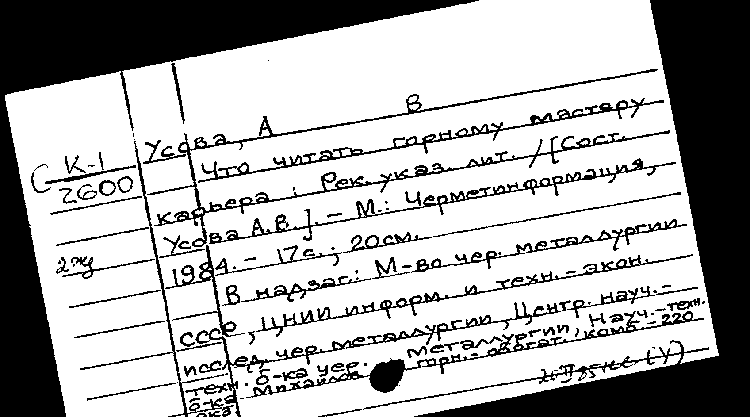 Усова, А В
С К-1
2600
Что читать горному мастеру
карьера : Рек. указ. лит. / [Сост.
Усова А.В.]. - М.: Черметинформация,
1984. - 17с. ; 20см.
2жу
В надзаг.: М-во чер. металлургии
СССР, ЦНИИ информ. и техн.-экон.
исслед. чер. металлургии, Центр. науч.-
техн. б-ка чер. металлургии, Науч.-техн.
б-ка Михайлов. горн.-обогат. комб. - 220